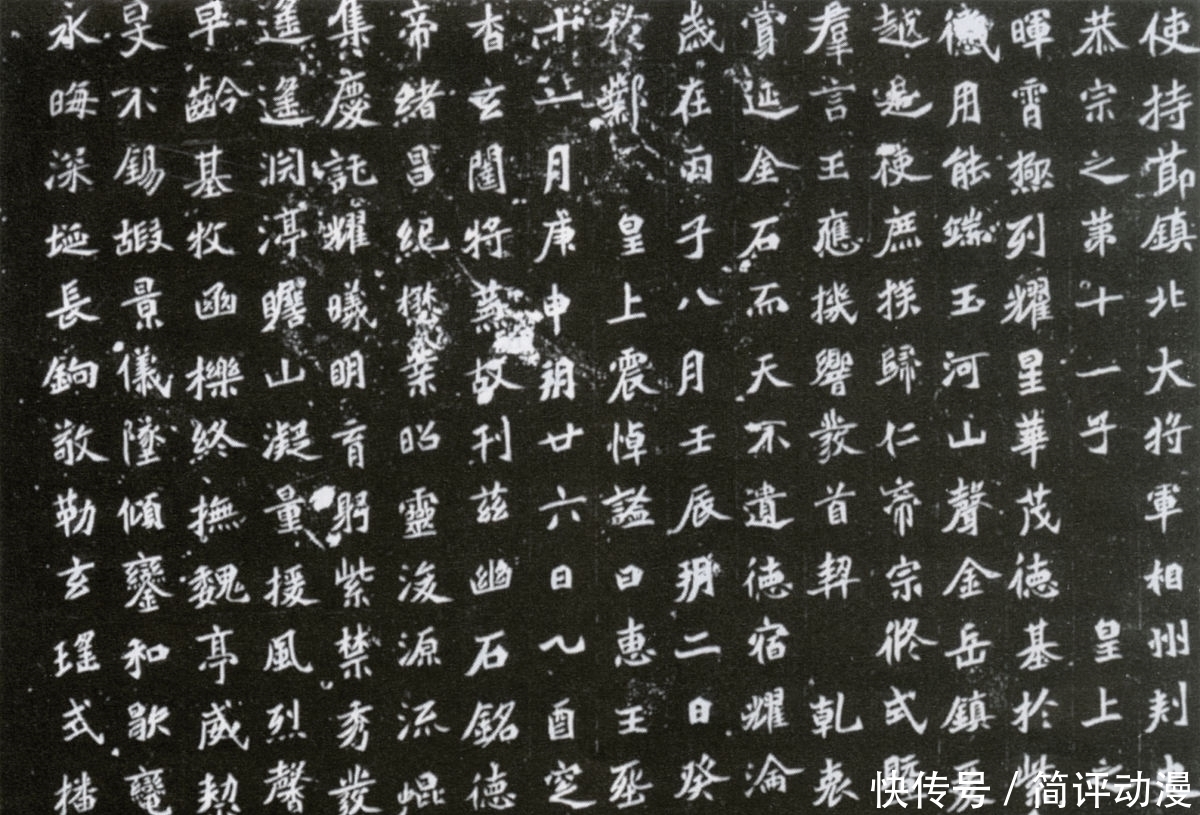 使持節鎮北大將軍相州刺史
恭宗之第十一子 皇上之
暉霄極列耀星華茂德基於紫
德用能端玉河山聲金岳鎮
越遍使庶族歸仁帝宗攸式
羣言王應機響發首契 乾衷
賞延金石而天不遺德宿耀淪
歲在丙子八月壬辰朔二日癸
於鄴 皇上震悼謚曰惠王丞
十一月庚申朔廿六日乙酉窆
杳玄闥將蕪故刊茲幽石銘德
帝緒昌紀懋業昭靈浚源流崐
集慶託耀曦明育躬紫禁秀發
遙遙淵渟瞻山凝量援風烈馨
早齡基牧函櫟終撫魏亭威契
旻不錫嘏景儀墜傾鑾和歇
永晦深埏長鉤敬勒玄瑤式播
快传号/简评动漫